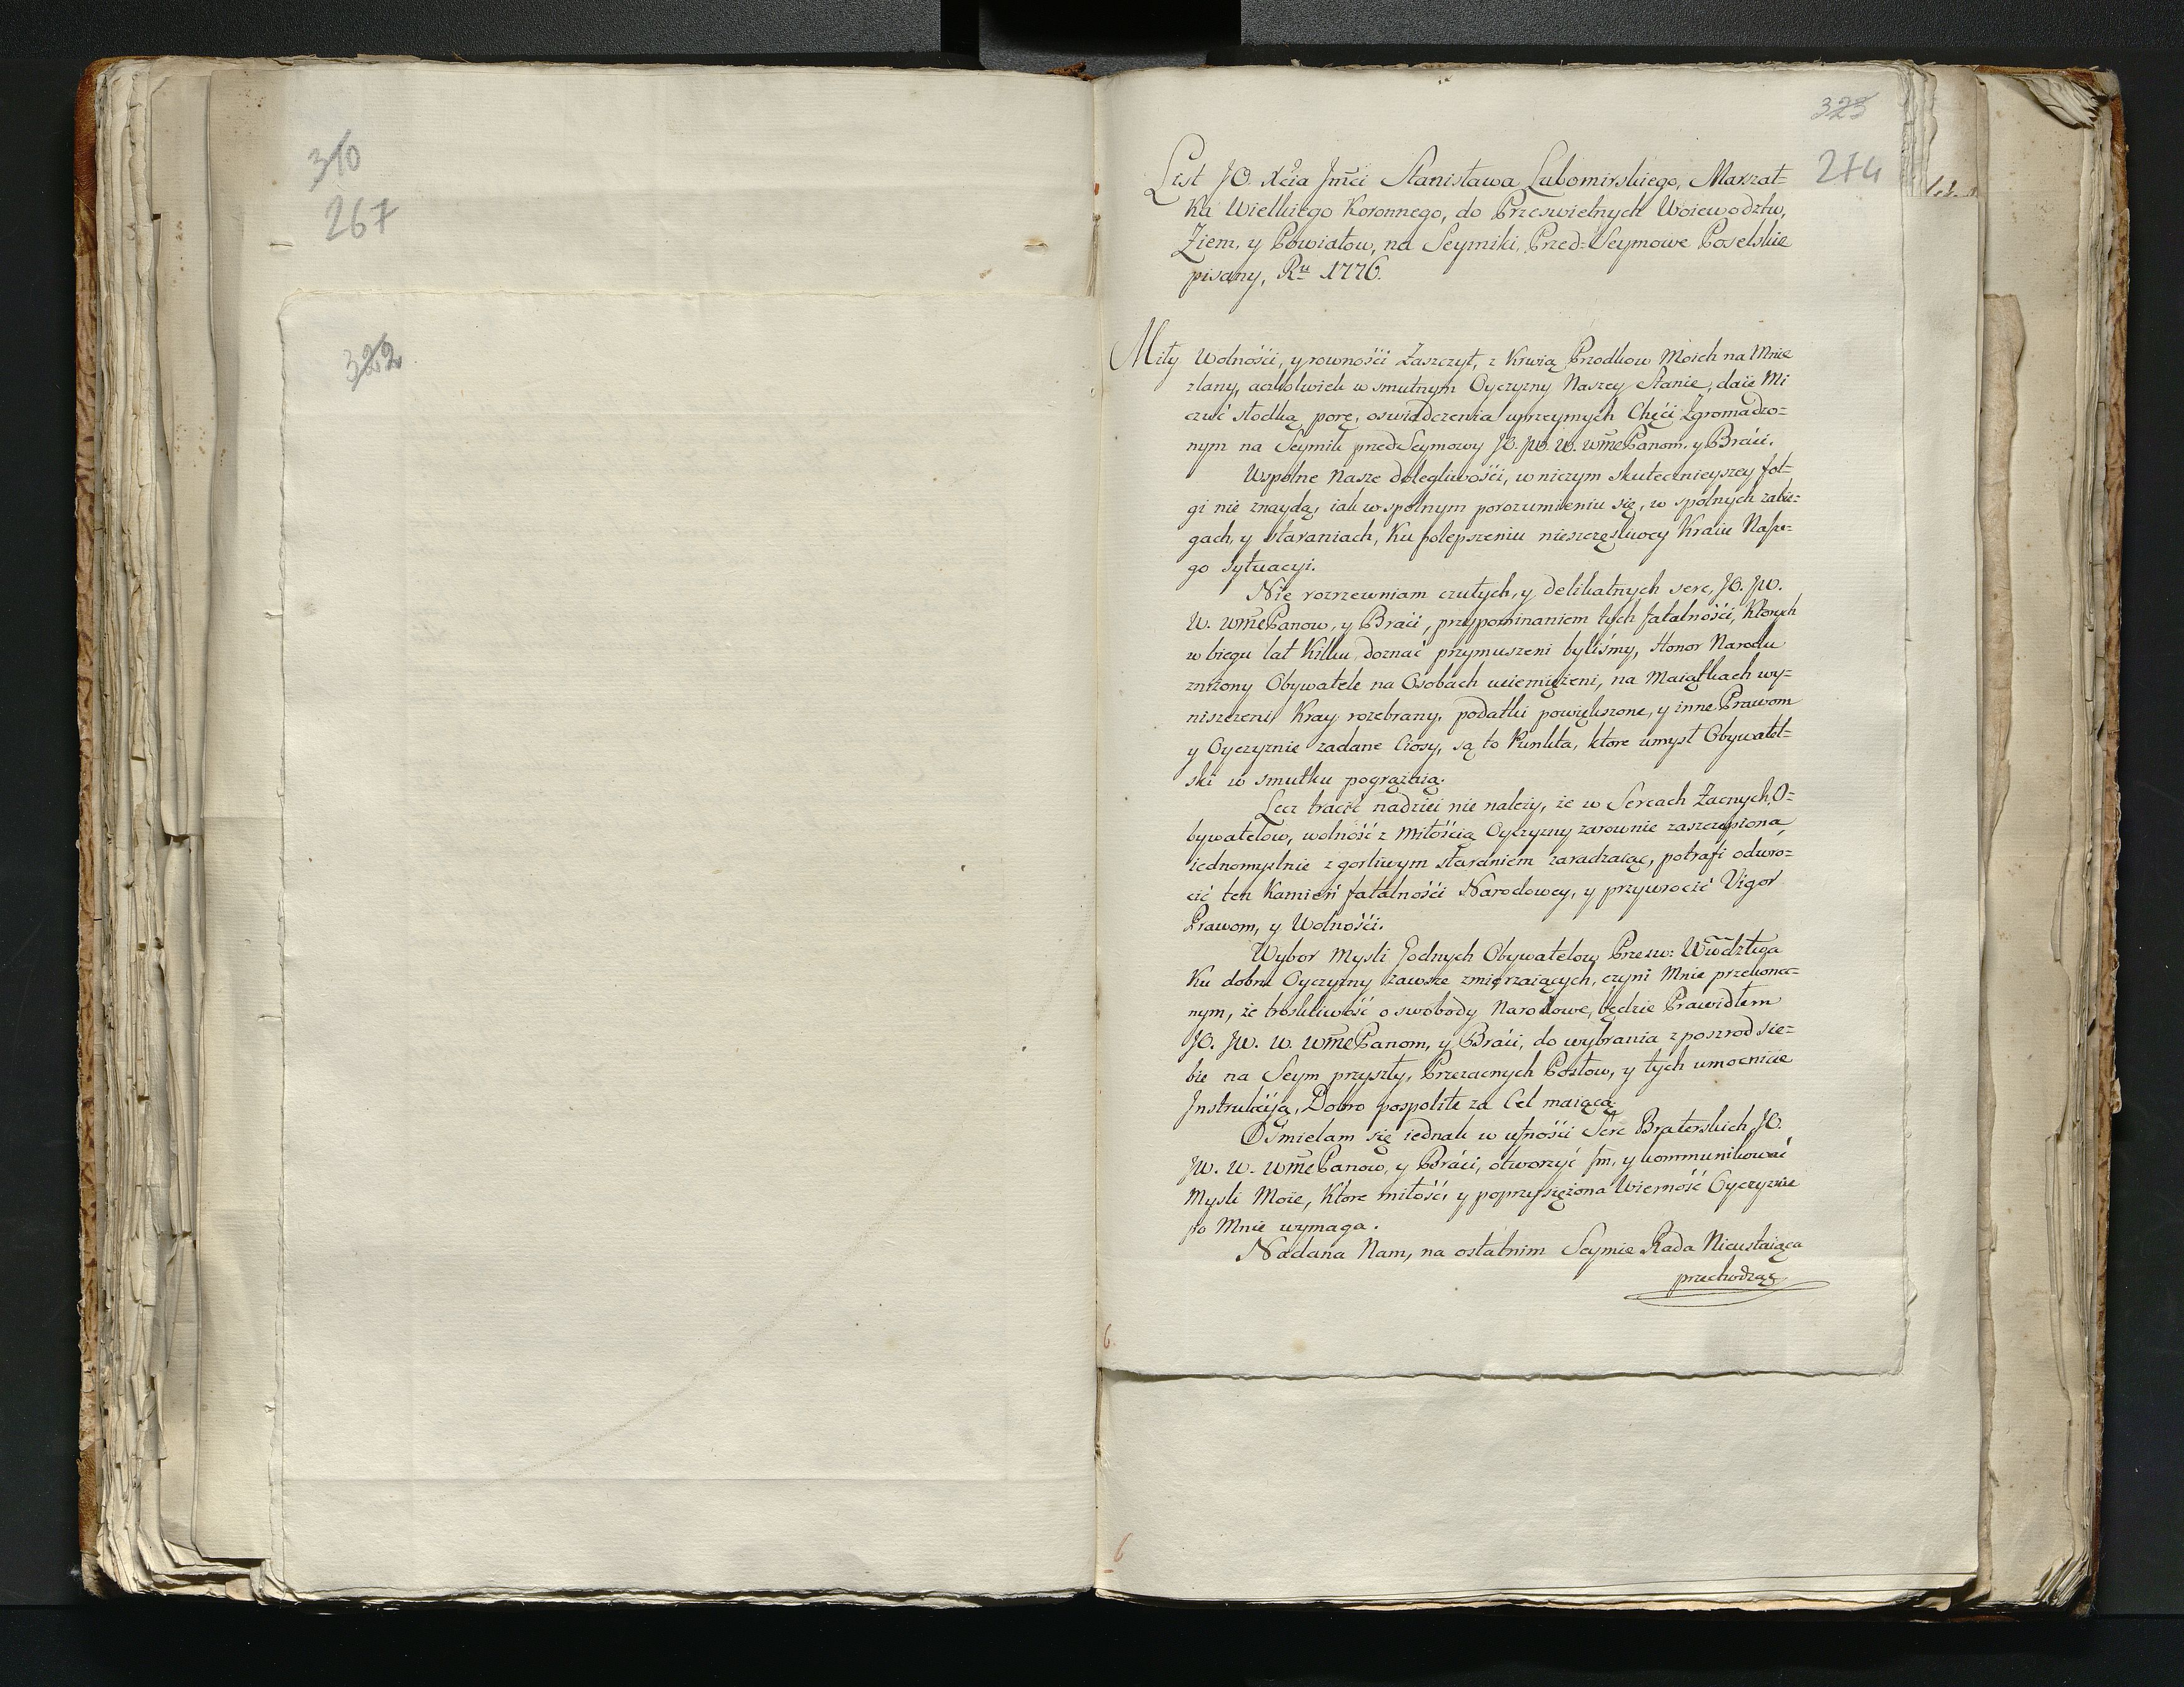 310
267
322
323
274
List JO. Xcia Jmci Stanisława Lubomirskiego, Marszał=
ka Wielkiego Koronnego, do Prześwietnych Woiewodztw,
Ziem, y Powiatow, na Seymiki, Przed=Seymowe Poselskie
pisany, Ru 1776.
Miły Wolnośći, y rownośći Zaszczyt, z Krwią Przodkow Moich na Mnie
zlany, acżkolwiek w smutnym Oyczyzny Naszey Stanie, daie Mi
czuć słodką porę, oswiadczenia uprzeymych Chęći Zgromadzo=
nym na Seymik przed Seymowy JO. JW. W. WmePanom, y Braći.
Wspolne Nasze dolegliwośći, w niczym skutecznieyszey fol=
gi nie znaydą, iak wspolnym porozumieniu się, w spolnych zabie=
gach, y staraniach, Ku polepszeniu nieszczęsliwey Kraiu Nasze=
go sytuacyi.
Nie rozrzewniam czułych, y delikatnych serc, JO. JW.
W. WmePanow, y Braći, przypominaniem tych fatalnośći, Ktorych
w biegu lat Kilku, doznać przymuszeni byliśmy, Honor Narodu
zniżony Obywatele na Osobach uciemiężeni, na Maiątkach wy=
niszczeni Kray rozebrany, podatki powiększone, y inne Prawom
y Oyczyznie zadane Ciosy, są to Punkta, ktore umysł Obywatel=
ski w smutku pogrążaią.
Lecz tracić nadziei nie należy, że w Sercach Zacnych O=
bywatelow, wolność z Miłośćią Oyczyzny zarownie zaszczepiona,
iednomyslnie z gorliwym staraniem zaradzaiąc, potrafi odwro=
cić ten Kamień fatalnośći Narodowey, y przywrocić Vigor
Prawom, y Wolnośći.
Wybor Mysli Godnych Obywatelow Przesw: Wwodztwa
Ku dobru Oyczyzny zawsze zmierzaiących, czyni Mnie przekona=
nym, że troskliwość o swobody Narodowe, będzie Prawidłem
JO. JW. W. WmePanom, y Braći, do wybrania z poszrod sie=
bie na Seym przyszły, Przezacnych Posłow, y tych umocnicie
Instrukcyą, Dobro pospolite za Cel maiącą.
Ośmielam się iednak w ufnośći Serc Braterskich JO.
JW. W. WmePanow, y Braći, otworzyć Im, y kommunikować
Mysli Moie, Ktore miłość, y poprzysiężona Wierność Oyczyznie
po Mnie wymaga.
Nadana Nam, na ostatnim Seymie Rada Nieustaiąca
przechodząc
6
6